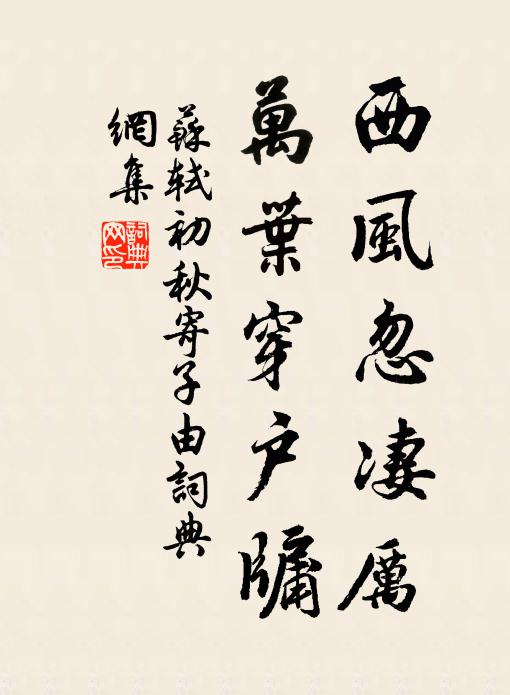 西風忽凄厲
萬葉穿戶牖
蘇軾初秋寄子由詞典
網集
詞典
网印